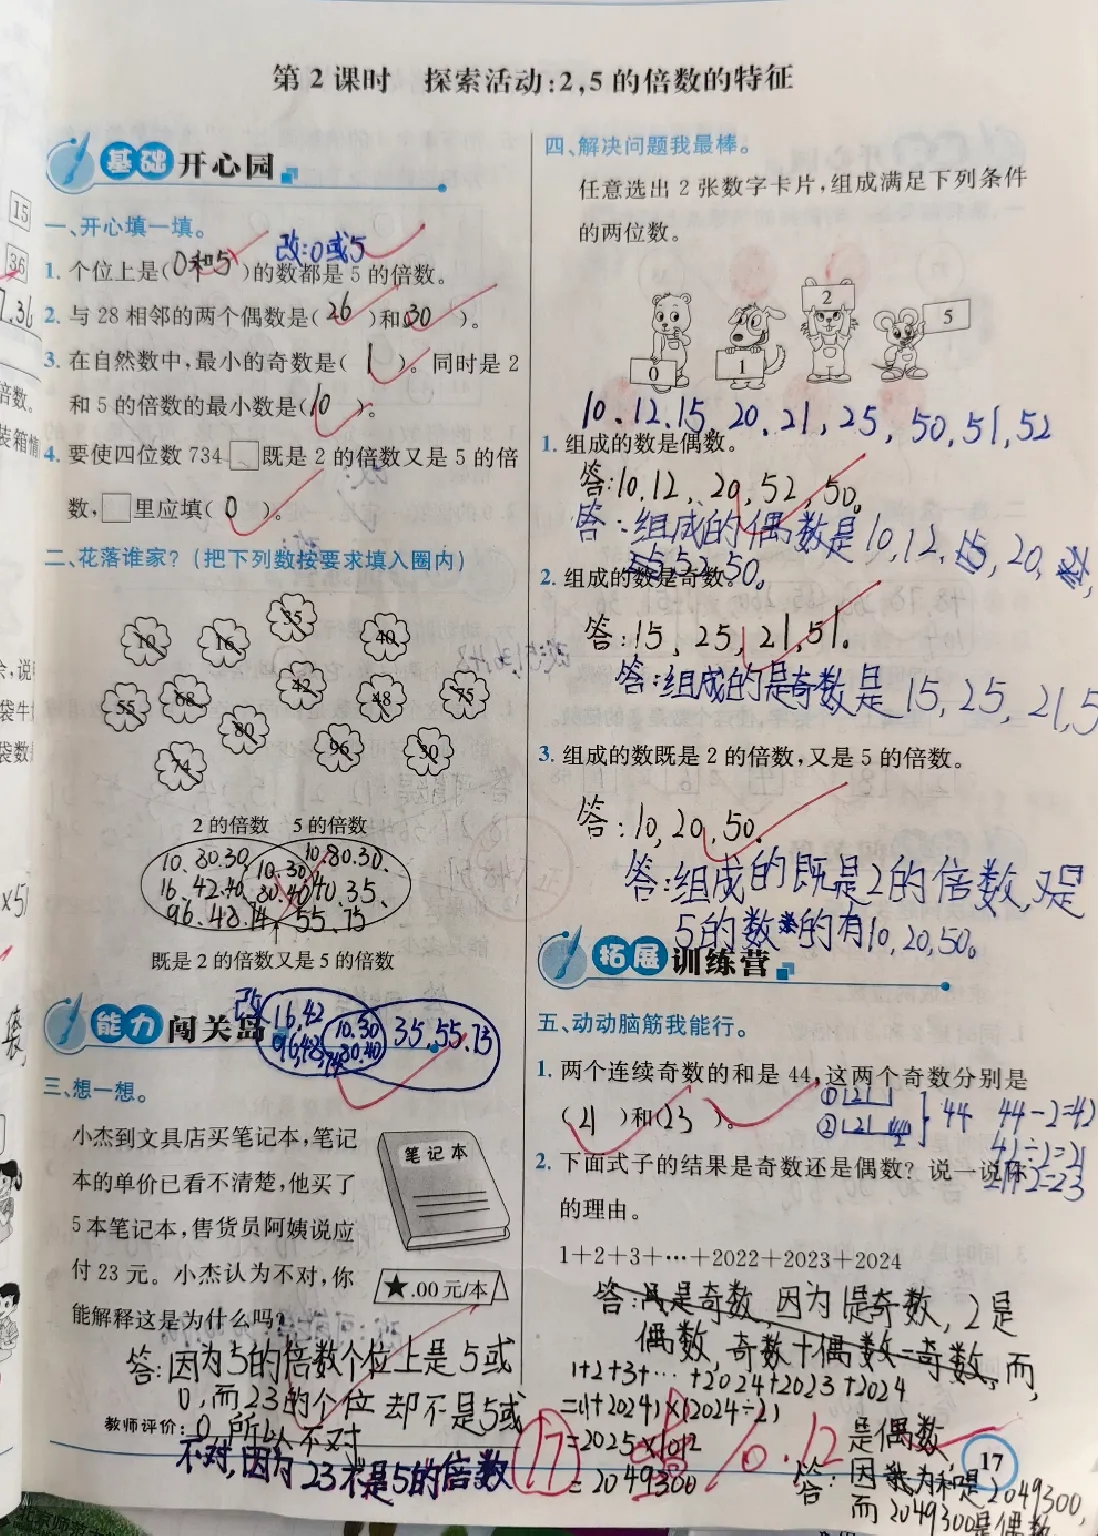 第2课时 探索活动:2,5的倍数的特征
基础开心园
一、开心填一填。
改:0或5
1. 个位上是(0和5)的数都是5的倍数。
2. 与28相邻的两个偶数是(26)和(30)。
3. 在自然数中,最小的奇数是(1)。同时是2
和5的倍数的最小数是(10)。
4. 要使四位数734□既是2的倍数又是5的倍
数,□里应填(0)。
二、花落谁家?(把下列数按要求填入圈内)
10 16 35 40
55 68 42 48 75
74 80 96 30
2的倍数 5的倍数
10.80.30 10.30 10.80.30.
16.42.40 80.40 40.35.
96.48.74 55.75
既是2的倍数又是5的倍数
能力闯关岛
改 16,42 10,30 35.55.75
96,48,74 80.40
三、想一想。
小杰到文具店买笔记本,笔记
本的单价已看不清楚,他买了
5本笔记本,售货员阿姨说应
付23元。小杰认为不对,你
能解释这是为什么吗?
笔记本
★.00元/本
答:因为5的倍数个位上是5或
0,而23的个位却不是5或
0,所以不对
教师评价:
不对,因为23不是5的倍数
四、解决问题我最棒。
任意选出2张数字卡片,组成满足下列条件
的两位数。
0 1 2 5
10、12、15、20、21,25,50,51,52
1. 组成的数是偶数。
答:10,12,20,52,50。
答:组成的偶数是10,12,20,
52,50。
2. 组成的数是奇数。
答:15,25,21,51。
答:组成的是奇数是15,25,21,5
3. 组成的数既是2的倍数,又是5的倍数。
答:10,20,50。
答:组成的既是2的倍数,又是
5的数的有10,20,50。
拓展训练营
五、动动脑筋我能行。
1. 两个连续奇数的和是44,这两个奇数分别是
(21)和(23)。
44 44-2=42
42÷2=21
21+2=23
2. 下面式子的结果是奇数还是偶数?说一说你
的理由。
1+2+3+…+2022+2023+2024
答:是奇数,因为1是奇数,2是
偶数,奇数+偶数=奇数,而
1+2+3+…+2024+2023+2024
=(1+2024)×(2024÷2)
=2025×1012
=2049300
是偶数
答:因为和是2049300,
而2049300是偶数
⑰ 10.12
17